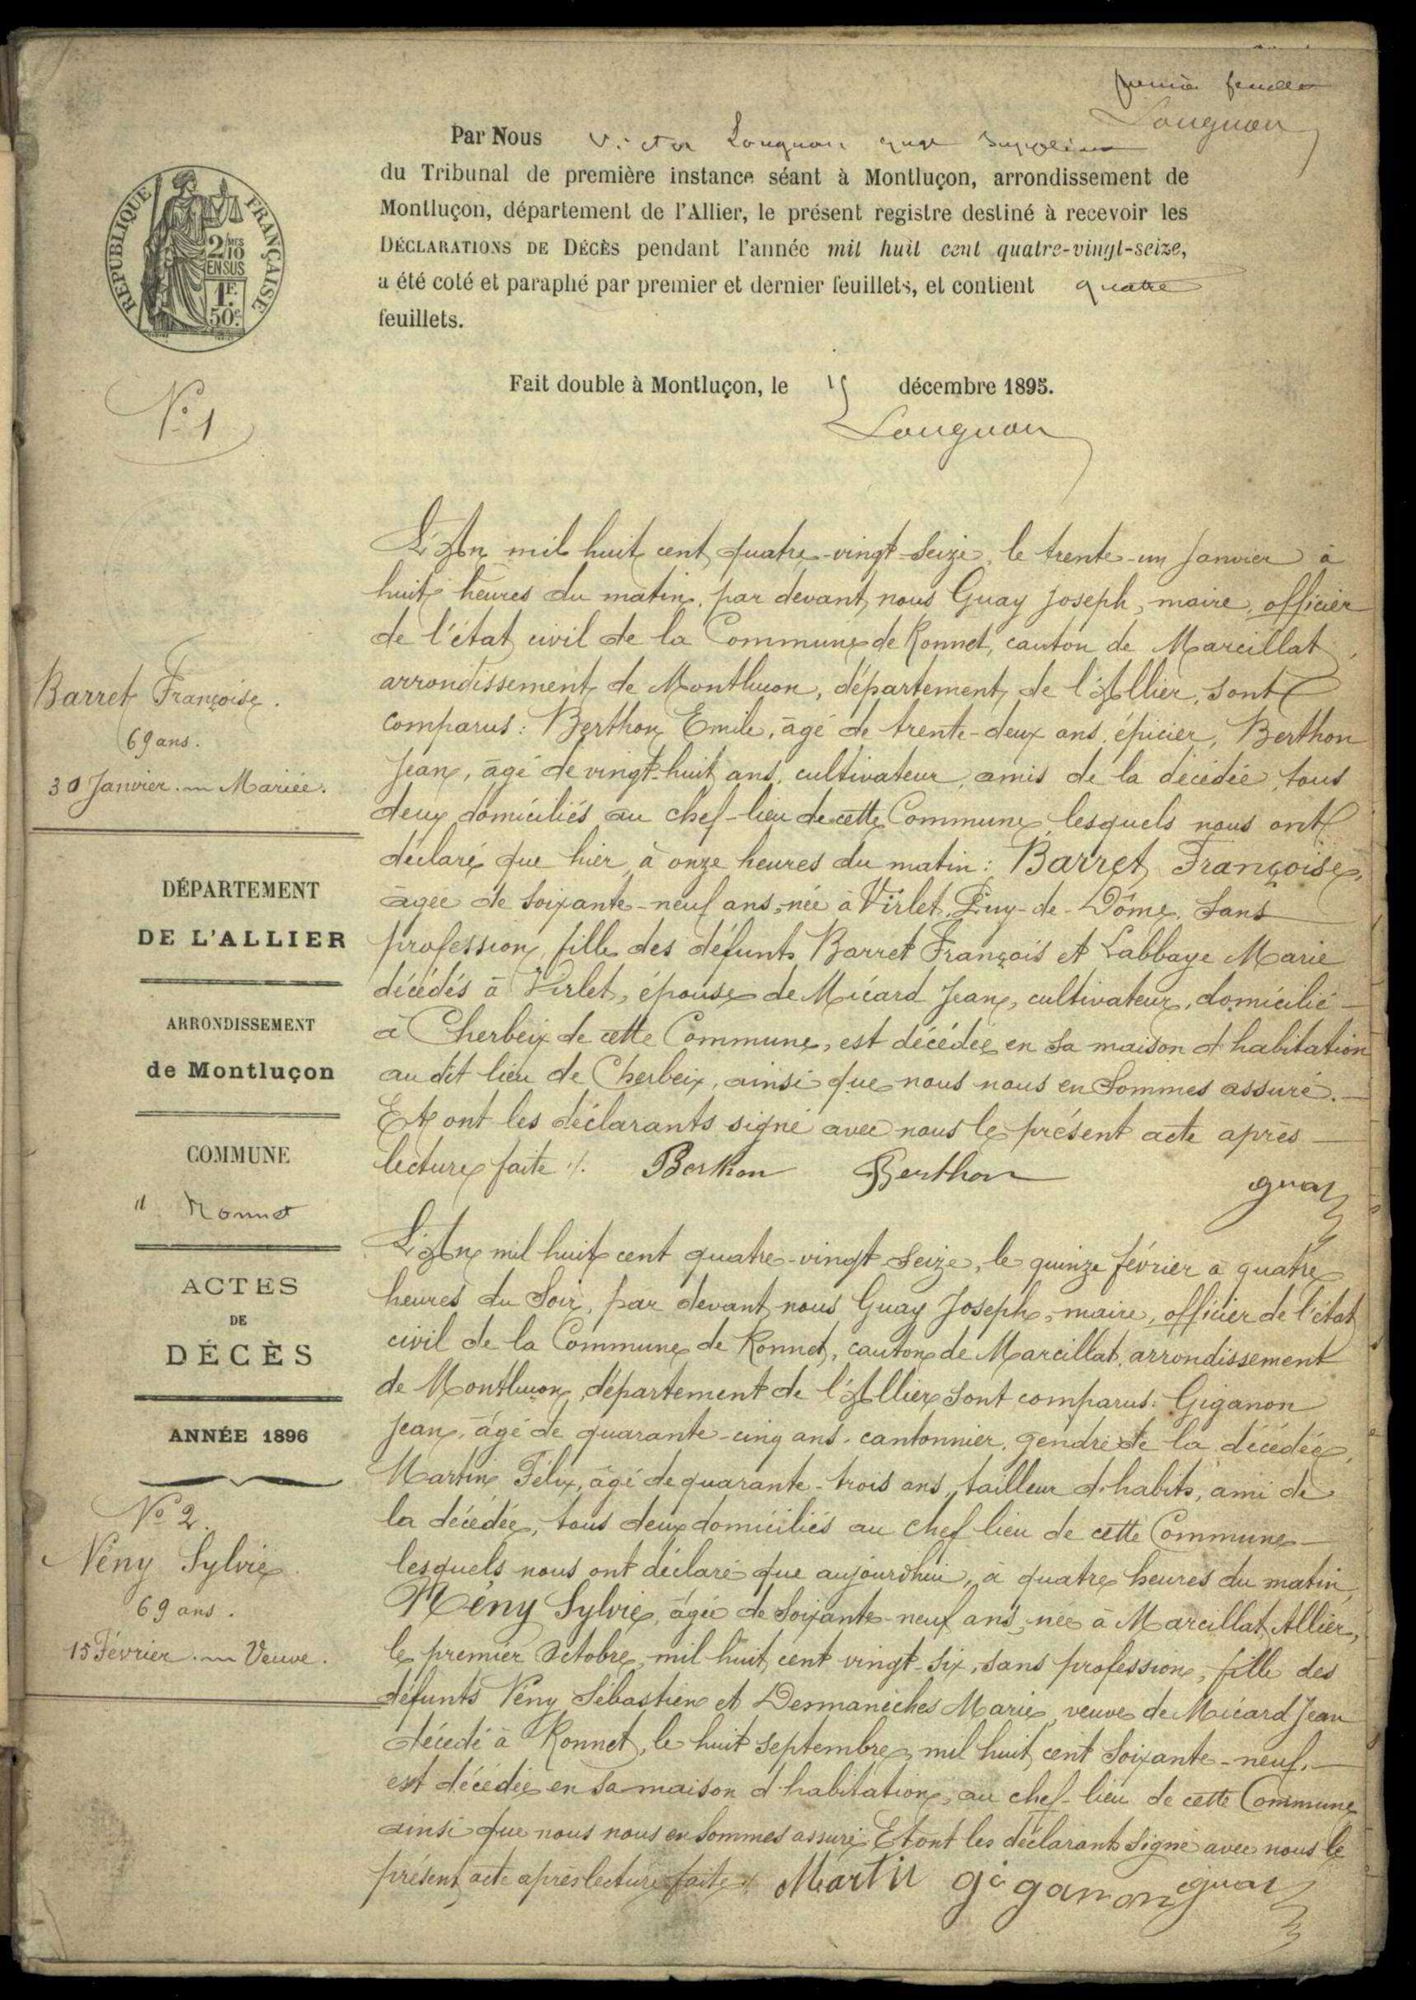 première feuille
Lougnon
Par Nous Victor Lougnon juge suppléant
du Tribunal de première instance séant à Montluçon, arrondissement de
Montluçon, département de l'Allier, le présent registre destiné à recevoir les
DÉCLARATIONS DE DÉCÈS pendant l'année mil huit cent quatre-vingt-seize,
a été coté et paraphé par premier et dernier feuillets, et contient quatre
feuillets.
Fait double à Montluçon, le 15 décembre 1895.
Lougnon
RÉPUBLIQUE FRANÇAISE
2/10 MES
EN SUS
1F.
50c.
N° 1
Barret Françoise.
69 ans.
30 Janvier. Mariée.
L'An mil huit cent quatre-vingt-seize, le trente-un janvier à
huit heures du matin, par devant nous Guay Joseph, maire, officier
de l'état civil de la Commune de Ronnet, canton de Marcillat,
arrondissement de Montluçon, département de l'Allier, sont
comparus: Berthon Emile, âgé de trente-deux ans, épicier, Berthon
Jean, âgé de vingt-huit ans, cultivateur, amis de la décédée, tous
deux domiciliés au chef-lieu de cette Commune, lesquels nous ont
déclaré que hier, à onze heures du matin: Barret Françoise,
âgée de soixante-neuf ans, née à Virlet, Puy-de-Dôme, sans
profession, fille des défunts Barret François et Labbaye Marie
décédés à Virlet, épouse de Micard Jean, cultivateur, domicilié
à Cherbeix de cette Commune, est décédée en sa maison d'habitation
au dit lieu de Cherbeix, ainsi que nous nous en sommes assuré.
Et ont les déclarants signé avec nous le présent acte après
lecture faite ./. Berthon Berthon Guay
DÉPARTEMENT
DE L'ALLIER
ARRONDISSEMENT
de Montluçon
COMMUNE
d Ronnet
ACTES
DE
DÉCÈS
ANNÉE 1896
N° 2.
Vény Sylvie
69 ans.
15 Février. Veuve.
L'An mil huit cent quatre-vingt seize, le quinze février à quatre
heures du soir, par devant nous Guay Joseph, maire, officier de l'état
civil de la Commune de Ronnet, canton de Marcillat, arrondissement
de Montluçon, département de l'Allier sont comparus: Giganon
Jean, âgé de quarante-cinq ans, cantonnier, gendre de la décédée,
Martin Félix, âgé de quarante-trois ans, tailleur d'habits, ami de
la décédée, tous deux domiciliés au chef lieu de cette Commune
lesquels nous ont déclaré que aujourd'hui, à quatre heures du matin,
Vény Sylvie, âgée de soixante-neuf ans, née à Marcillat, Allier,
le premier Octobre mil huit cent vingt-six, sans profession, fille des
défunts Vény Sébastien et Desmanèches Marie, veuve de Micard Jean
décédé à Ronnet, le huit septembre mil huit cent soixante-neuf,
est décédée en sa maison d'habitation, au chef-lieu de cette Commune
ainsi que nous nous en sommes assuré. Et ont les déclarants signé avec nous le
présent acte après lecture faite ./. Martin giganon Guay